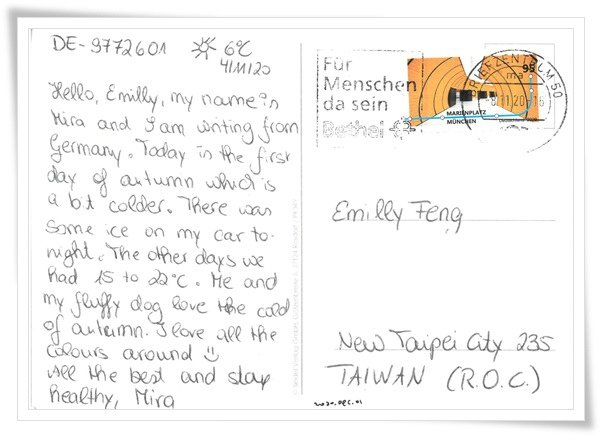 DE-9772601 6°C
4/11/20
Hello, Emilly, my name is
Mira and I am writing from
Germany. Today in the first
day of autumn which is
a bit colder. There was
some ice on my car to-
night. The other days we
had 15 to 22°C. Me and
my fluffy dog love the cold
of autumn. I love all the
colours around
All the best and stay
healthy, Mira
Für
Menschen
da sein
Bethel
BRIEFZENTRUM 50
95
MARIENPLATZ
MÜNCHEN
Emilly Feng
New Taipei City 235
TAIWAN (R.O.C.)
2020.DEC.01